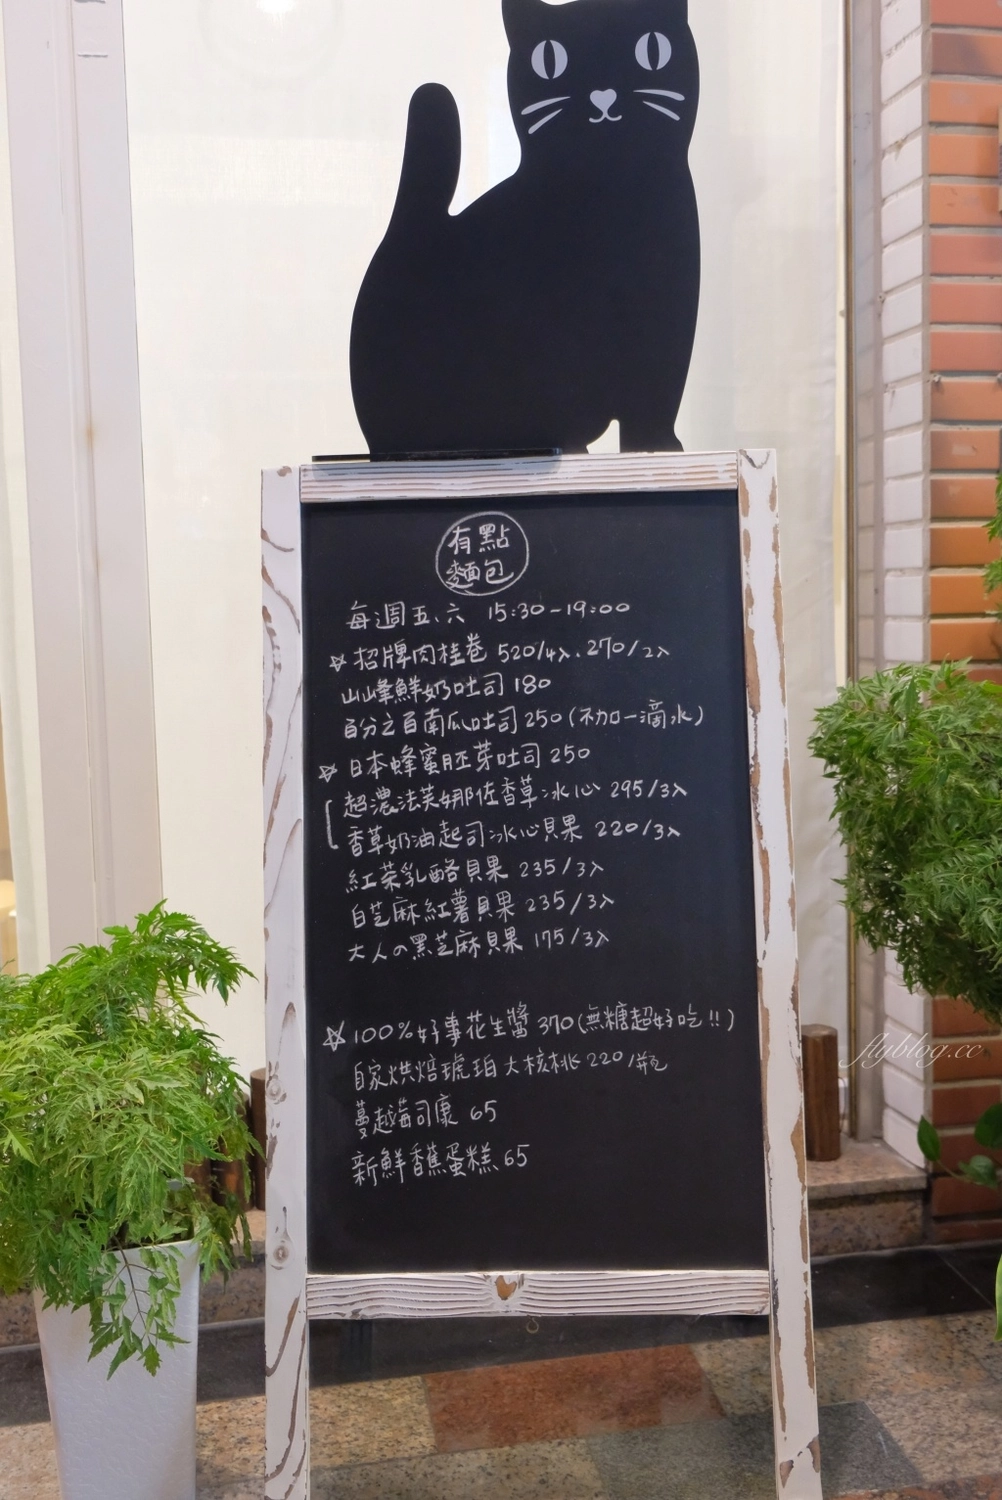 有點
麵包
每週五、六 15:30-19:00
☆招牌肉桂卷 520/4入、270/2入
山山峰鮮奶吐司 180
百分之百南瓜吐司 250 (不加一滴水)
☆日本蜂蜜胚芽吐司 250
超濃法芙娜佐香草冰心 295/3入
香草奶油起司冰心貝果 220/3入
紅茶乳酪貝果 235/3入
白芝麻紅薯貝果 235/3入
大人の黑芝麻貝果 175/3入
☆100%好事花生醬 370 (無糖超好吃!!)
自家烘焙琥珀大核桃 220/瓶
蔓越莓司康 65
新鮮香蕉蛋糕 65
flyblog.cc